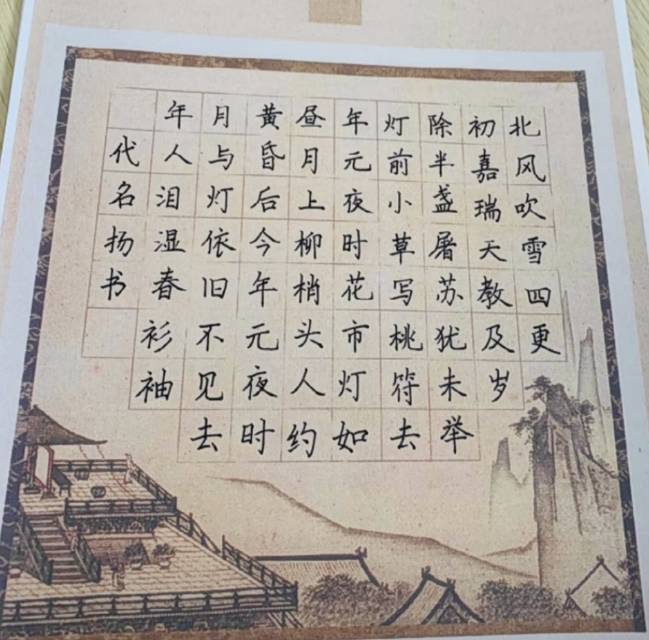 北风吹雪四更
初嘉瑞天教及岁
除半盏屠苏犹未举
灯前小草写桃符去
年元夜时花市灯如
昼月上柳梢头人约
黄昏后今年元夜时
月与灯依旧不见去
年人泪湿春衫袖
代名扬书